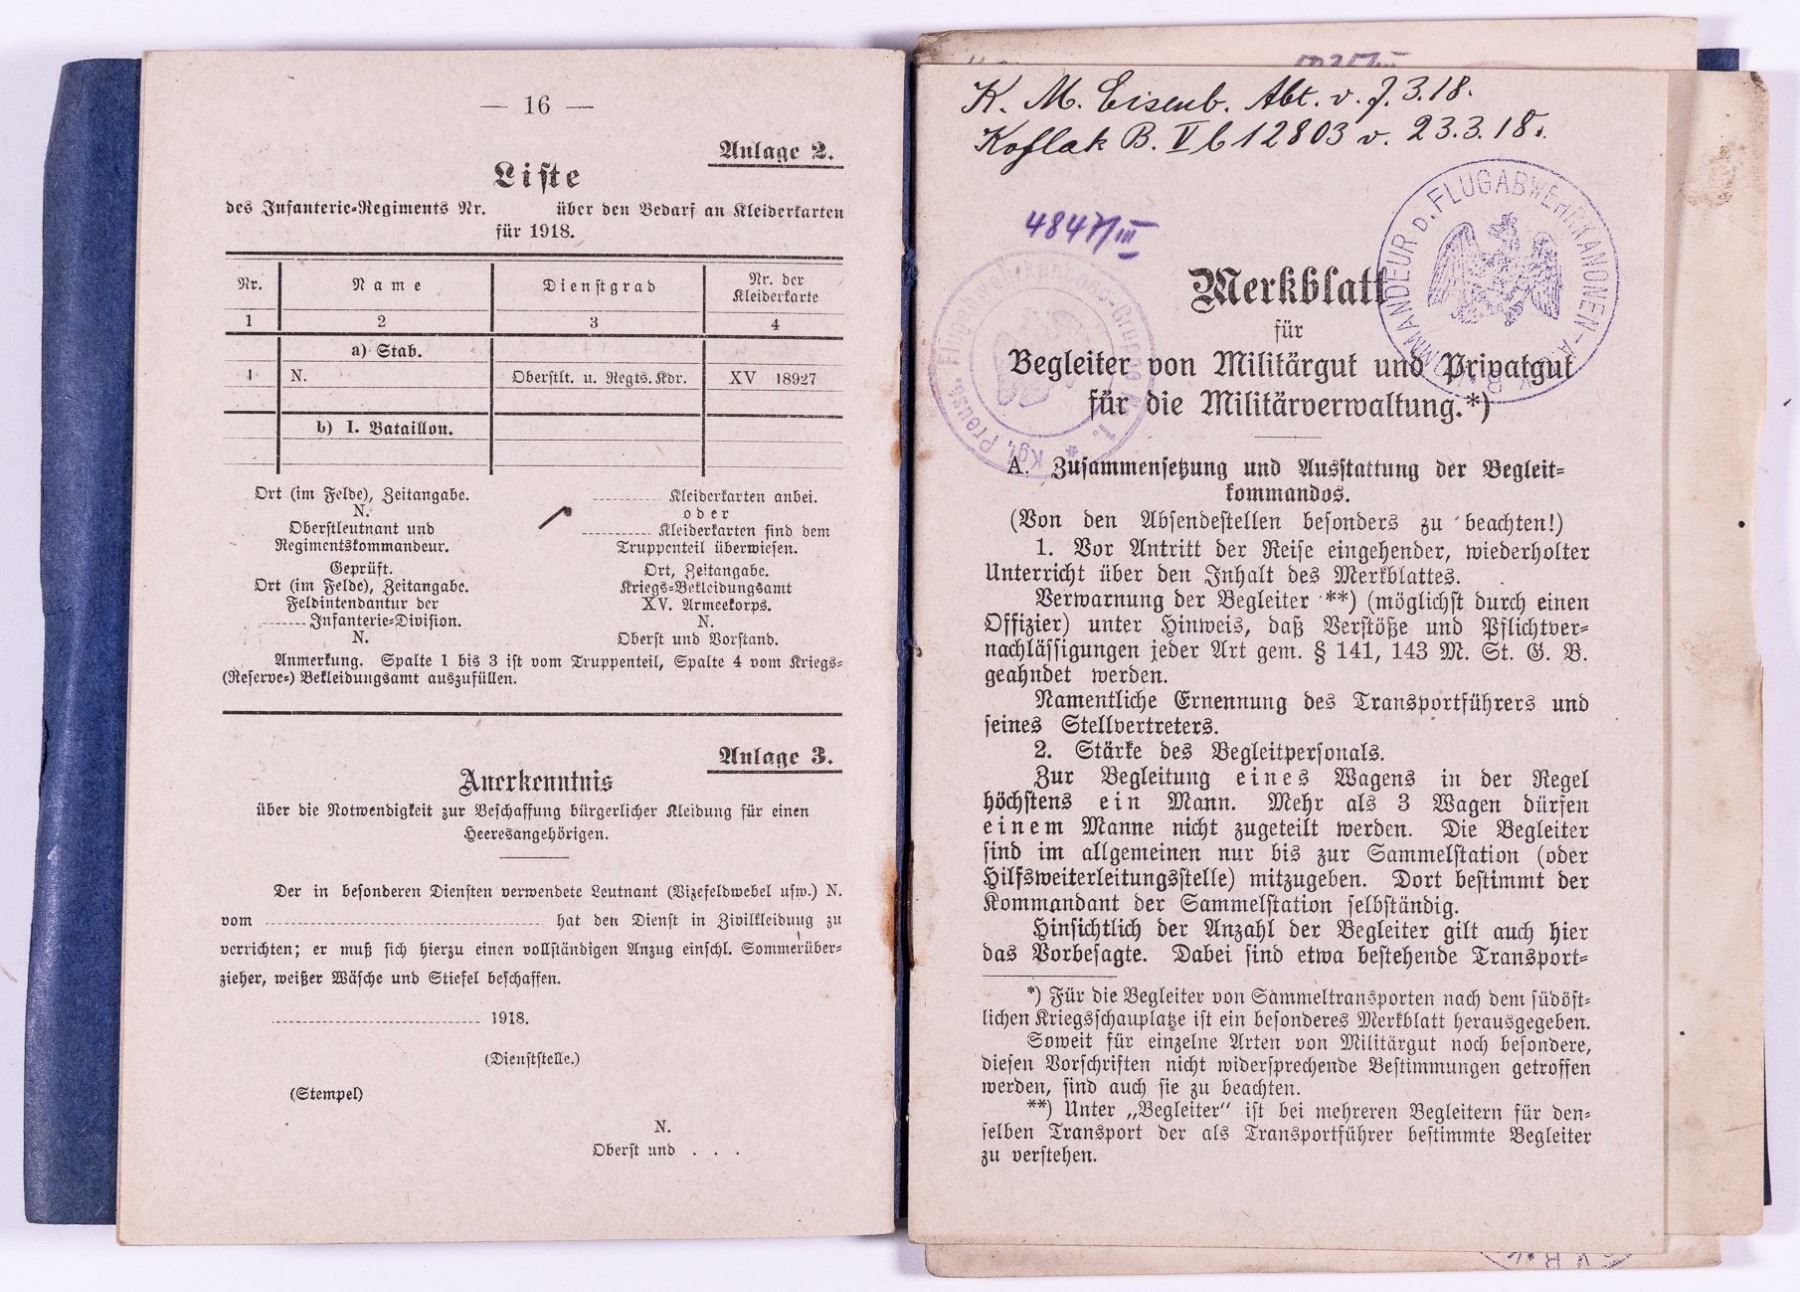 — 16 —
Anlage 2.
Liste
des Infanterie-Regiments Nr. über den Bedarf an Kleiderkarten
für 1918.
Nr. Name Dienstgrad Nr. der
Kleiderkarte
1 2 3 4
a) Stab.
1 N. Oberstlt. u. Regts.Kdr. XV 18927
b) I. Bataillon.
Ort (im Felde), Zeitangabe.
N.
Oberstleutnant und
Regimentskommandeur.
Geprüft.
Ort (im Felde), Zeitangabe.
Feldintendantur der
Infanterie-Division.
N.
Kleiderkarten anbei.
oder
Kleiderkarten sind dem
Truppenteil überwiesen.
Ort, Zeitangabe.
Kriegs-Bekleidungsamt
XV. Armeekorps.
N.
Oberst und Vorstand.
Anmerkung. Spalte 1 bis 3 ist vom Truppenteil, Spalte 4 vom Kriegs-
(Reserve-) Bekleidungsamt auszufüllen.
Anlage 3.
Anerkenntnis
über die Notwendigkeit zur Beschaffung bürgerlicher Kleidung für einen
Heeresangehörigen.
Der in besonderen Diensten verwendete Leutnant (Vizefeldwebel usw.) N.
vom hat den Dienst in Zivilkleidung zu
verrichten; er muß sich hierzu einen vollständigen Anzug einschl. Sommerüber-
zieher, weißer Wäsche und Stiefel beschaffen.
1918.
(Dienststelle.)
(Stempel)
N.
Oberst und . . .
K. M. Eisenb. Abt. v. 7.3.18.
Koflak B. V b 12803 v. 23.3.18.
4847/III
KOMMANDEUR D. FLUGABWEHRKANONEN
Kgl. Preuss.
Merkblatt
für
Begleiter von Militärgut und Privatgut
für die Militärverwaltung.*)
A. Zusammensetzung und Ausstattung der Begleit-
kommandos.
(Von den Absendestellen besonders zu beachten!)
1. Vor Antritt der Reise eingehender, wiederholter
Unterricht über den Inhalt des Merkblattes.
Verwarnung der Begleiter **) (möglichst durch einen
Offizier) unter Hinweis, daß Verstöße und Pflichtver-
nachlässigungen jeder Art gem. § 141, 143 M. St. G. B.
geahndet werden.
Namentliche Ernennung des Transportführers und
seines Stellvertreters.
2. Stärke des Begleitpersonals.
Zur Begleitung eines Wagens in der Regel
höchstens ein Mann. Mehr als 3 Wagen dürfen
einem Manne nicht zugeteilt werden. Die Begleiter
sind im allgemeinen nur bis zur Sammelstation (oder
Hilfsweiterleitungsstelle) mitzugeben. Dort bestimmt der
Kommandant der Sammelstation selbständig.
Hinsichtlich der Anzahl der Begleiter gilt auch hier
das Vorbesagte. Dabei sind etwa bestehende Transport-
*) Für die Begleiter von Sammeltransporten nach dem südöst-
lichen Kriegsschauplatze ist ein besonderes Merkblatt herausgegeben.
Soweit für einzelne Arten von Militärgut noch besondere,
diesen Vorschriften nicht widersprechende Bestimmungen getroffen
werden, sind auch sie zu beachten.
**) Unter „Begleiter“ ist bei mehreren Begleitern für den-
selben Transport der als Transportführer bestimmte Begleiter
zu verstehen.